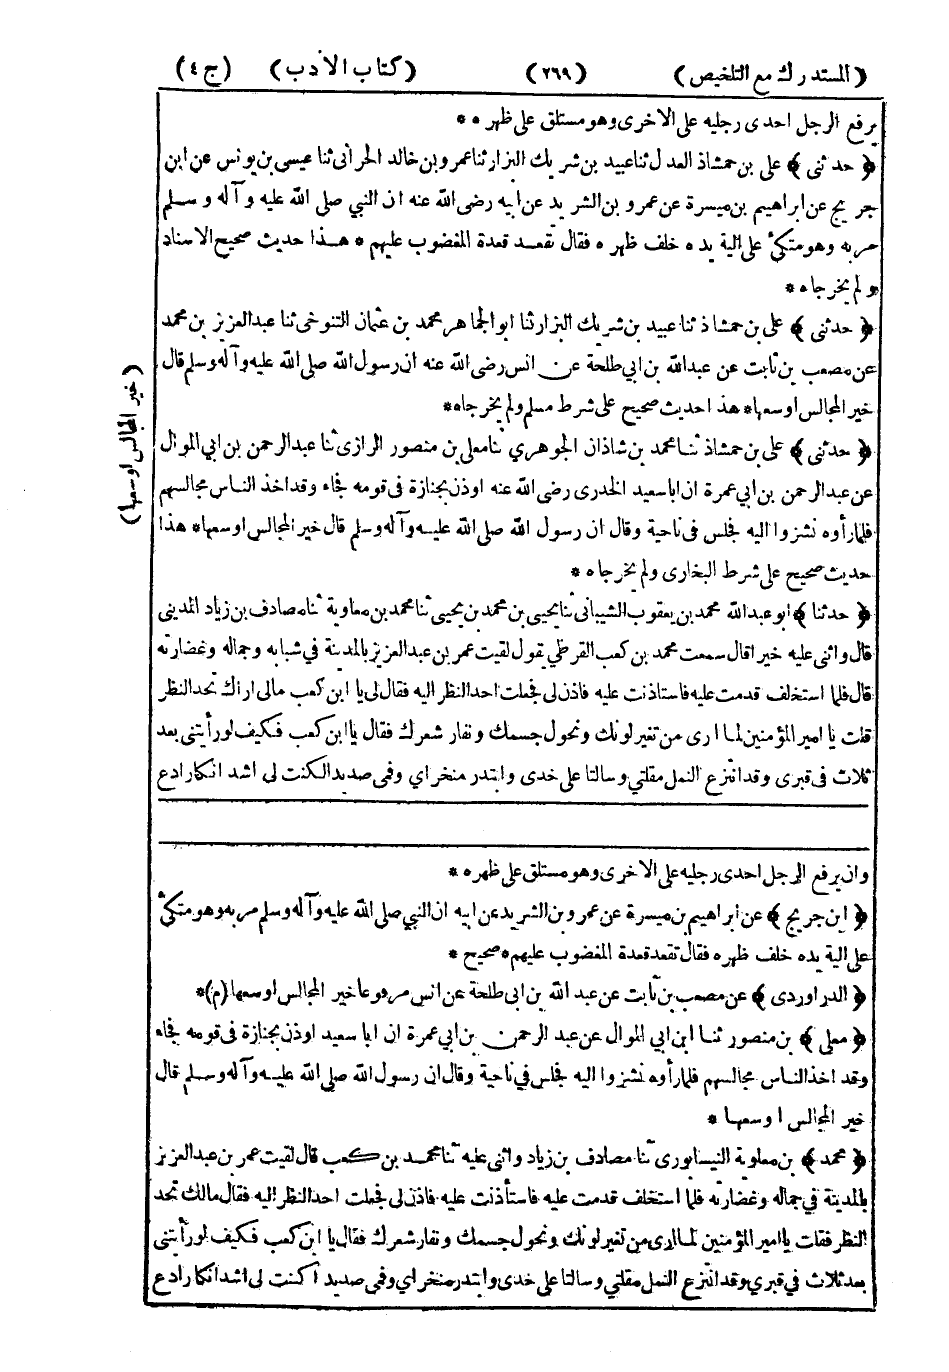 (المستدرك مع التلخيص) (٢٦٩) (كتاب الادب) (ج٤)
يرفع الرجل احدى رجليه على الاخرى وهو مستلق على ظهره *
﴿ حدثنى ﴾ على بن حمشاذ العدل ثنا عبيد بن شريك البزار ثنا عمرو بن خالد الحرانى ثنا عيسى بن يونس عن ابن
جريج عن ابراهيم بن ميسرة عن عمرو بن الشريد عن ابيه رضى الله عنه ان النبي صلى الله عليه وآله وسلم
مر به وهو متكئ على الية يده خلف ظهره فقال تقعد قعدة المغضوب عليهم * هذا حديث صحيح الاسناد
ولم يخرجاه *
﴿ حدثنى ﴾ على بن حمشاذ ثنا عبيد بن شريك البزار ثنا ابو الجماهر محمد بن عثمان التنوخى ثنا عبد العزيز بن محمد
عن مصعب بن ثابت عن عبد الله بن ابي طلحة عن انس رضى الله عنه ان رسول الله صلى الله عليه وآله وسلم قال
خير المجالس اوسعها * هذا حديث صحيح على شرط مسلم ولم يخرجاه *
(خير المجالس اوسعها)
﴿ حدثنى ﴾ على بن حمشاذ ثنا محمد بن شاذان الجوهري ثنا معلى بن منصور الرازى ثنا عبد الرحمن بن ابي الموال
عن عبد الرحمن بن ابي عمرة ان ابا سعيد الخدرى رضى الله عنه اوذن بجنازة فى قومه فجاء وقد اخذ الناس مجالسهم
فلما رأوه نشزوا اليه فجلس فى ناحية وقال ان رسول الله صلى الله عليه وآله وسلم قال خير المجالس اوسعها * هذا
حديث صحيح على شرط البخارى ولم يخرجاه *
﴿ حدثنا ﴾ ابو عبد الله محمد بن يعقوب الشيبانى ثنا يحيى بن محمد بن يحيى ثنا محمد بن معاوية ثنا مصادف بن زياد المدينى
قال واثنى عليه خيرا قال سمعت محمد بن كعب القرظي يقول لقيت عمر بن عبد العزيز بالمدينة في شبابه وجماله وغضارته
قال فلما استخلف قدمت عليه فاستاذنت عليه فاذن لى فجعلت احد النظر اليه فقال لى يا ابن كعب مالى اراك تحد النظر
قلت يا امير المؤمنين لما ارى من تغير لونك ونحول جسمك ونفار شعرك فقال يا ابن كعب فكيف لو رأيتنى بعد
ثلاث فى قبرى وقد انتزع النمل مقلتي وسالتا على خدى وابتدر منخراي وفمى صديدا لكنت لى اشد انكارا دع
وان يرفع الرجل احدى رجليه على الاخرى وهو مستلق على ظهره *
﴿ ابن جريج ﴾ عن ابراهيم بن ميسرة عن عمرو بن الشريد عن ابيه ان النبي صلى الله عليه وآله وسلم مر به وهو متكئ
على الية يده خلف ظهره فقال تقعد قعدة المغضوب عليهم * صحيح *
﴿ الدراوردى ﴾ عن مصعب بن ثابت عن عبد الله بن ابى طلحة عن انس مرفوعا خير المجالس اوسعها (م) *
﴿ معلى ﴾ بن منصور ثنا ابن ابي الموال عن عبد الرحمن بن ابي عمرة ان ابا سعيد اوذن بجنازة فى قومه فجاء
وقد اخذ الناس مجالسهم فلما رأوه نشزوا اليه فجلس في ناحية وقال ان رسول الله صلى الله عليه وآله وسلم قال
خير المجالس اوسعها *
﴿ محمد ﴾ بن معاوية النيسابورى ثنا مصادف بن زياد واثنى عليه ثنا محمد بن كعب قال لقيت عمر بن عبد العزيز
بالمدينة في جماله وغضارته فلما استخلف قدمت عليه فاستأذنت عليه فاذن لى فجعلت احد النظر اليه فقال مالك تحد
النظر فقلت يا امير المؤمنين لما ارى من تغير لونك ونحول جسمك ونفار شعرك فقال يا ابن كعب فكيف لو رأيتنى
بعد ثلاث في قبري وقد انتزع النمل مقلتي وسالتا على خدى وابتدر منخراي وفمى صديدا كنت لى اشد انكارا دع